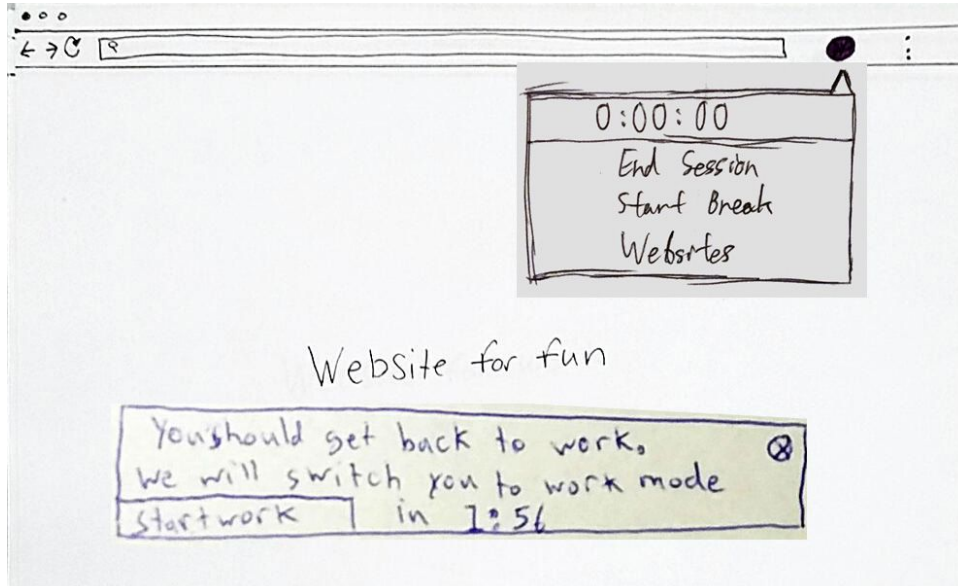 0:00:00
End Session
Start Break
Websites
Website for fun
You should get back to work.
we will switch you to work mode
start work in 1:56